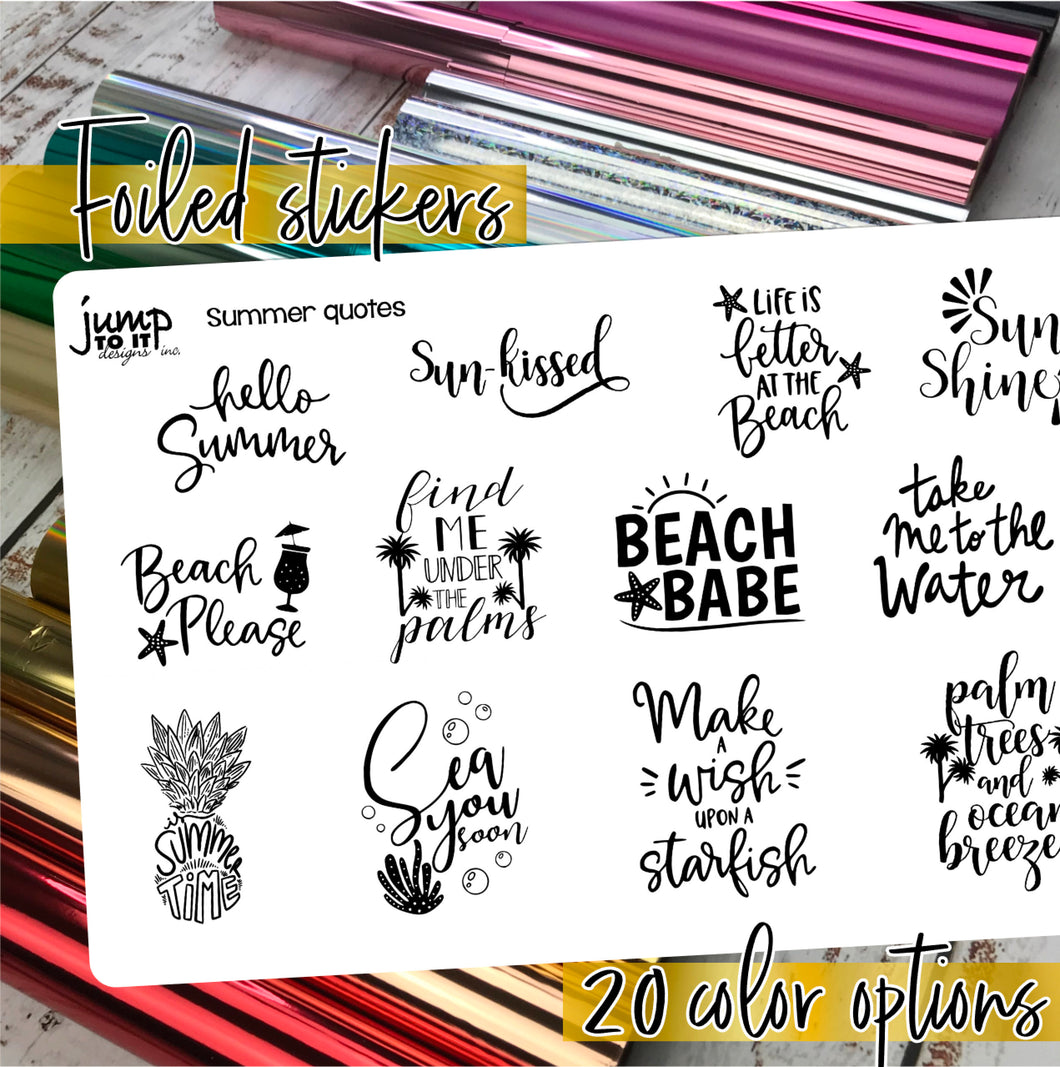 Foiled stickers
jump
TO IT
designs inc.
Summer quotes
hello
Summer
Sun-kissed
LIFE IS
better
AT THE
Beach
Sun
Shine
Beach
Please
find
ME
UNDER
THE
palms
BEACH
BABE
take
me to the
Water
SUMMER
TIME
Sea
you
soon
Make
A
wish
UPON A
starfish
palm
trees
and
ocean
breeze
20 color options